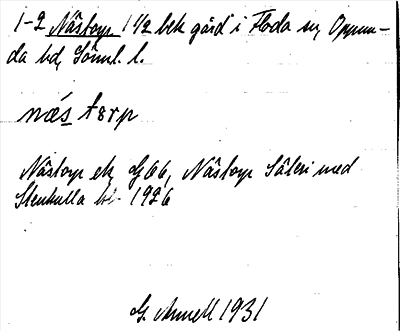 1-2 Nästorp 1 1/2 bek gård i Floda sn, Oppun-
da hd, Söml. l.
näs tårp
Nästorp ek G66, Nästorp Säteri med
Stenkulla 1926
G. Annell 1931